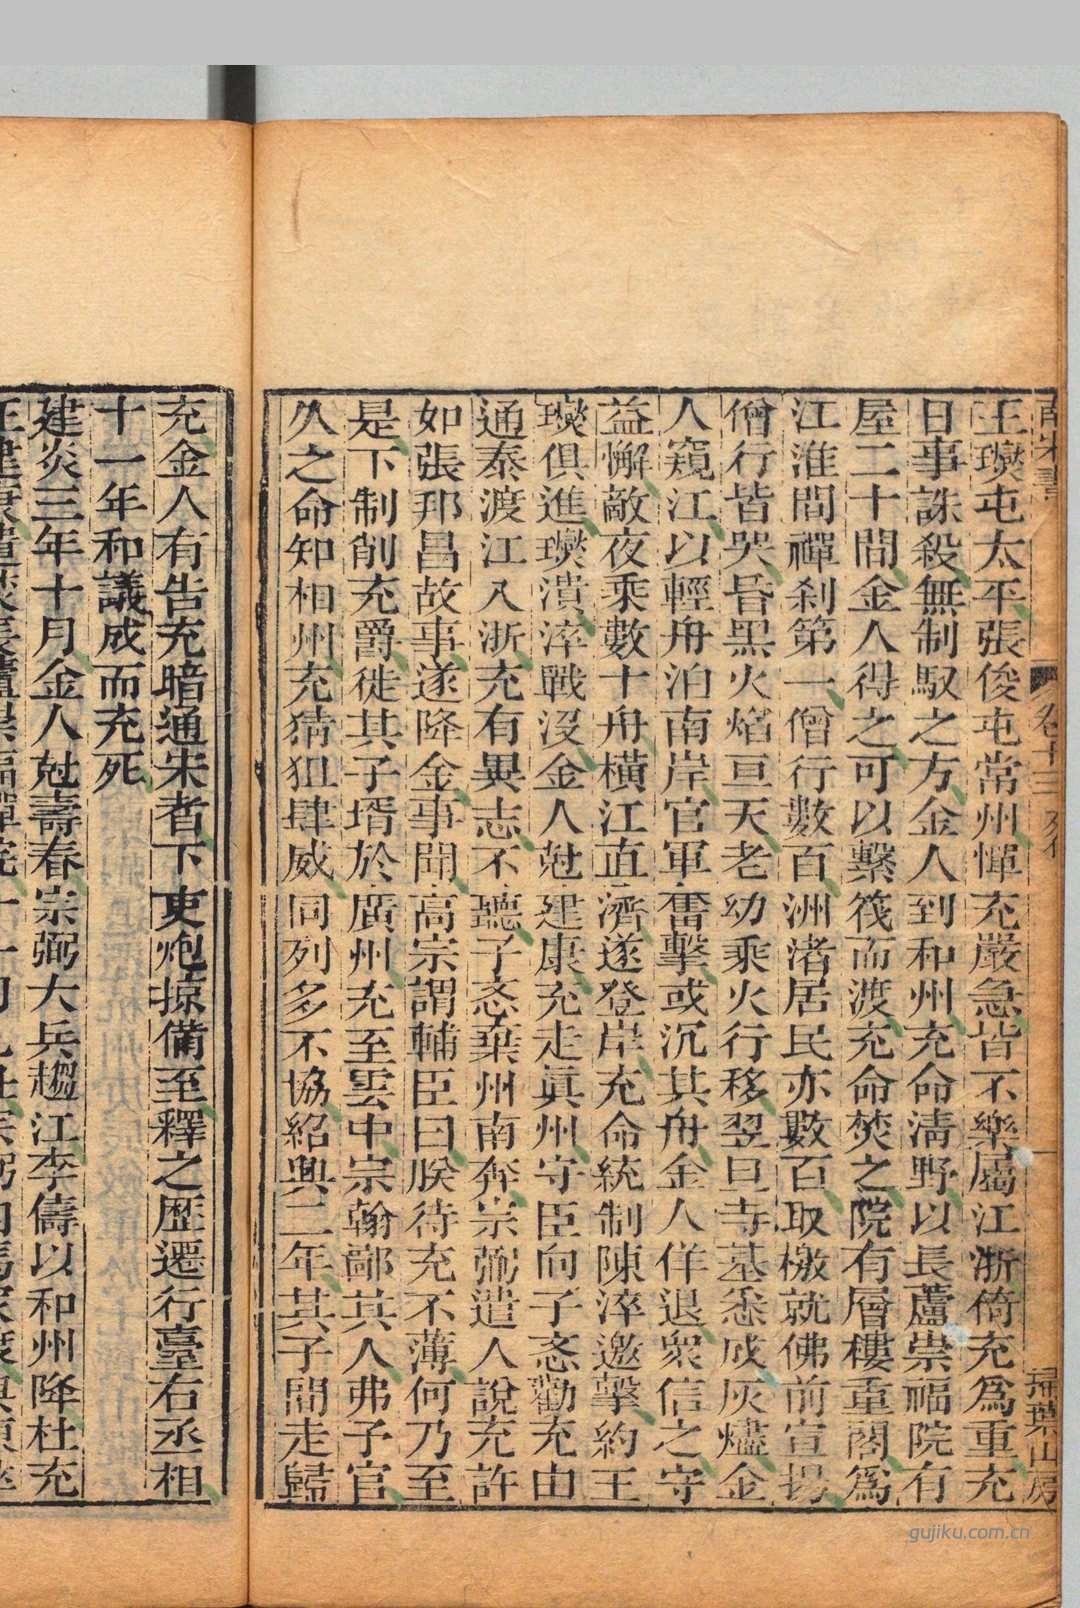 南宋書 卷十三 列傳 掃葉山房
王𤫉屯太平張俊屯常州憚充嚴急皆不樂屬江浙倚充爲重充
日事誅殺無制馭之方金人到和州充命淸野以長蘆崇福院有
屋二十間金人得之可以繫筏而渡充命焚之院有層樓重閣爲
江淮間禪刹第一僧行數百洲渚居民亦數百取檄就佛前宣揚
僧行皆哭昏黑火焰亘天老幼乘火行移翌旦寺基悉成灰燼金
人窺江以輕舟泊南岸官軍奮擊或沉其舟金人佯退衆信之守
益懈敵夜乘數十舟橫江直濟遂登岸充命統制陳淬邀擊約王
𤫉俱進𤫉潰淬戰沒金人尅建康充走眞州守臣向子忞勸充由
通泰渡江入浙充有異志不聽子忞棄州南奔宗弼遣人說充許
如張邦昌故事遂降金事聞高宗謂輔臣曰朕待充不薄何乃至
是下制削充爵徙其子壻於廣州充至雲中宗翰鄙其人弗子官
久之命知相州充猜狙肆威同列多不協紹興二年其子間走歸
充金人有告充暗通宋者下吏炮掠備至釋之歷遷行臺右丞相
十一年和議成而充死
建炎三年十月金人尅壽春宗弼大兵趨江李儔以和州降杜充